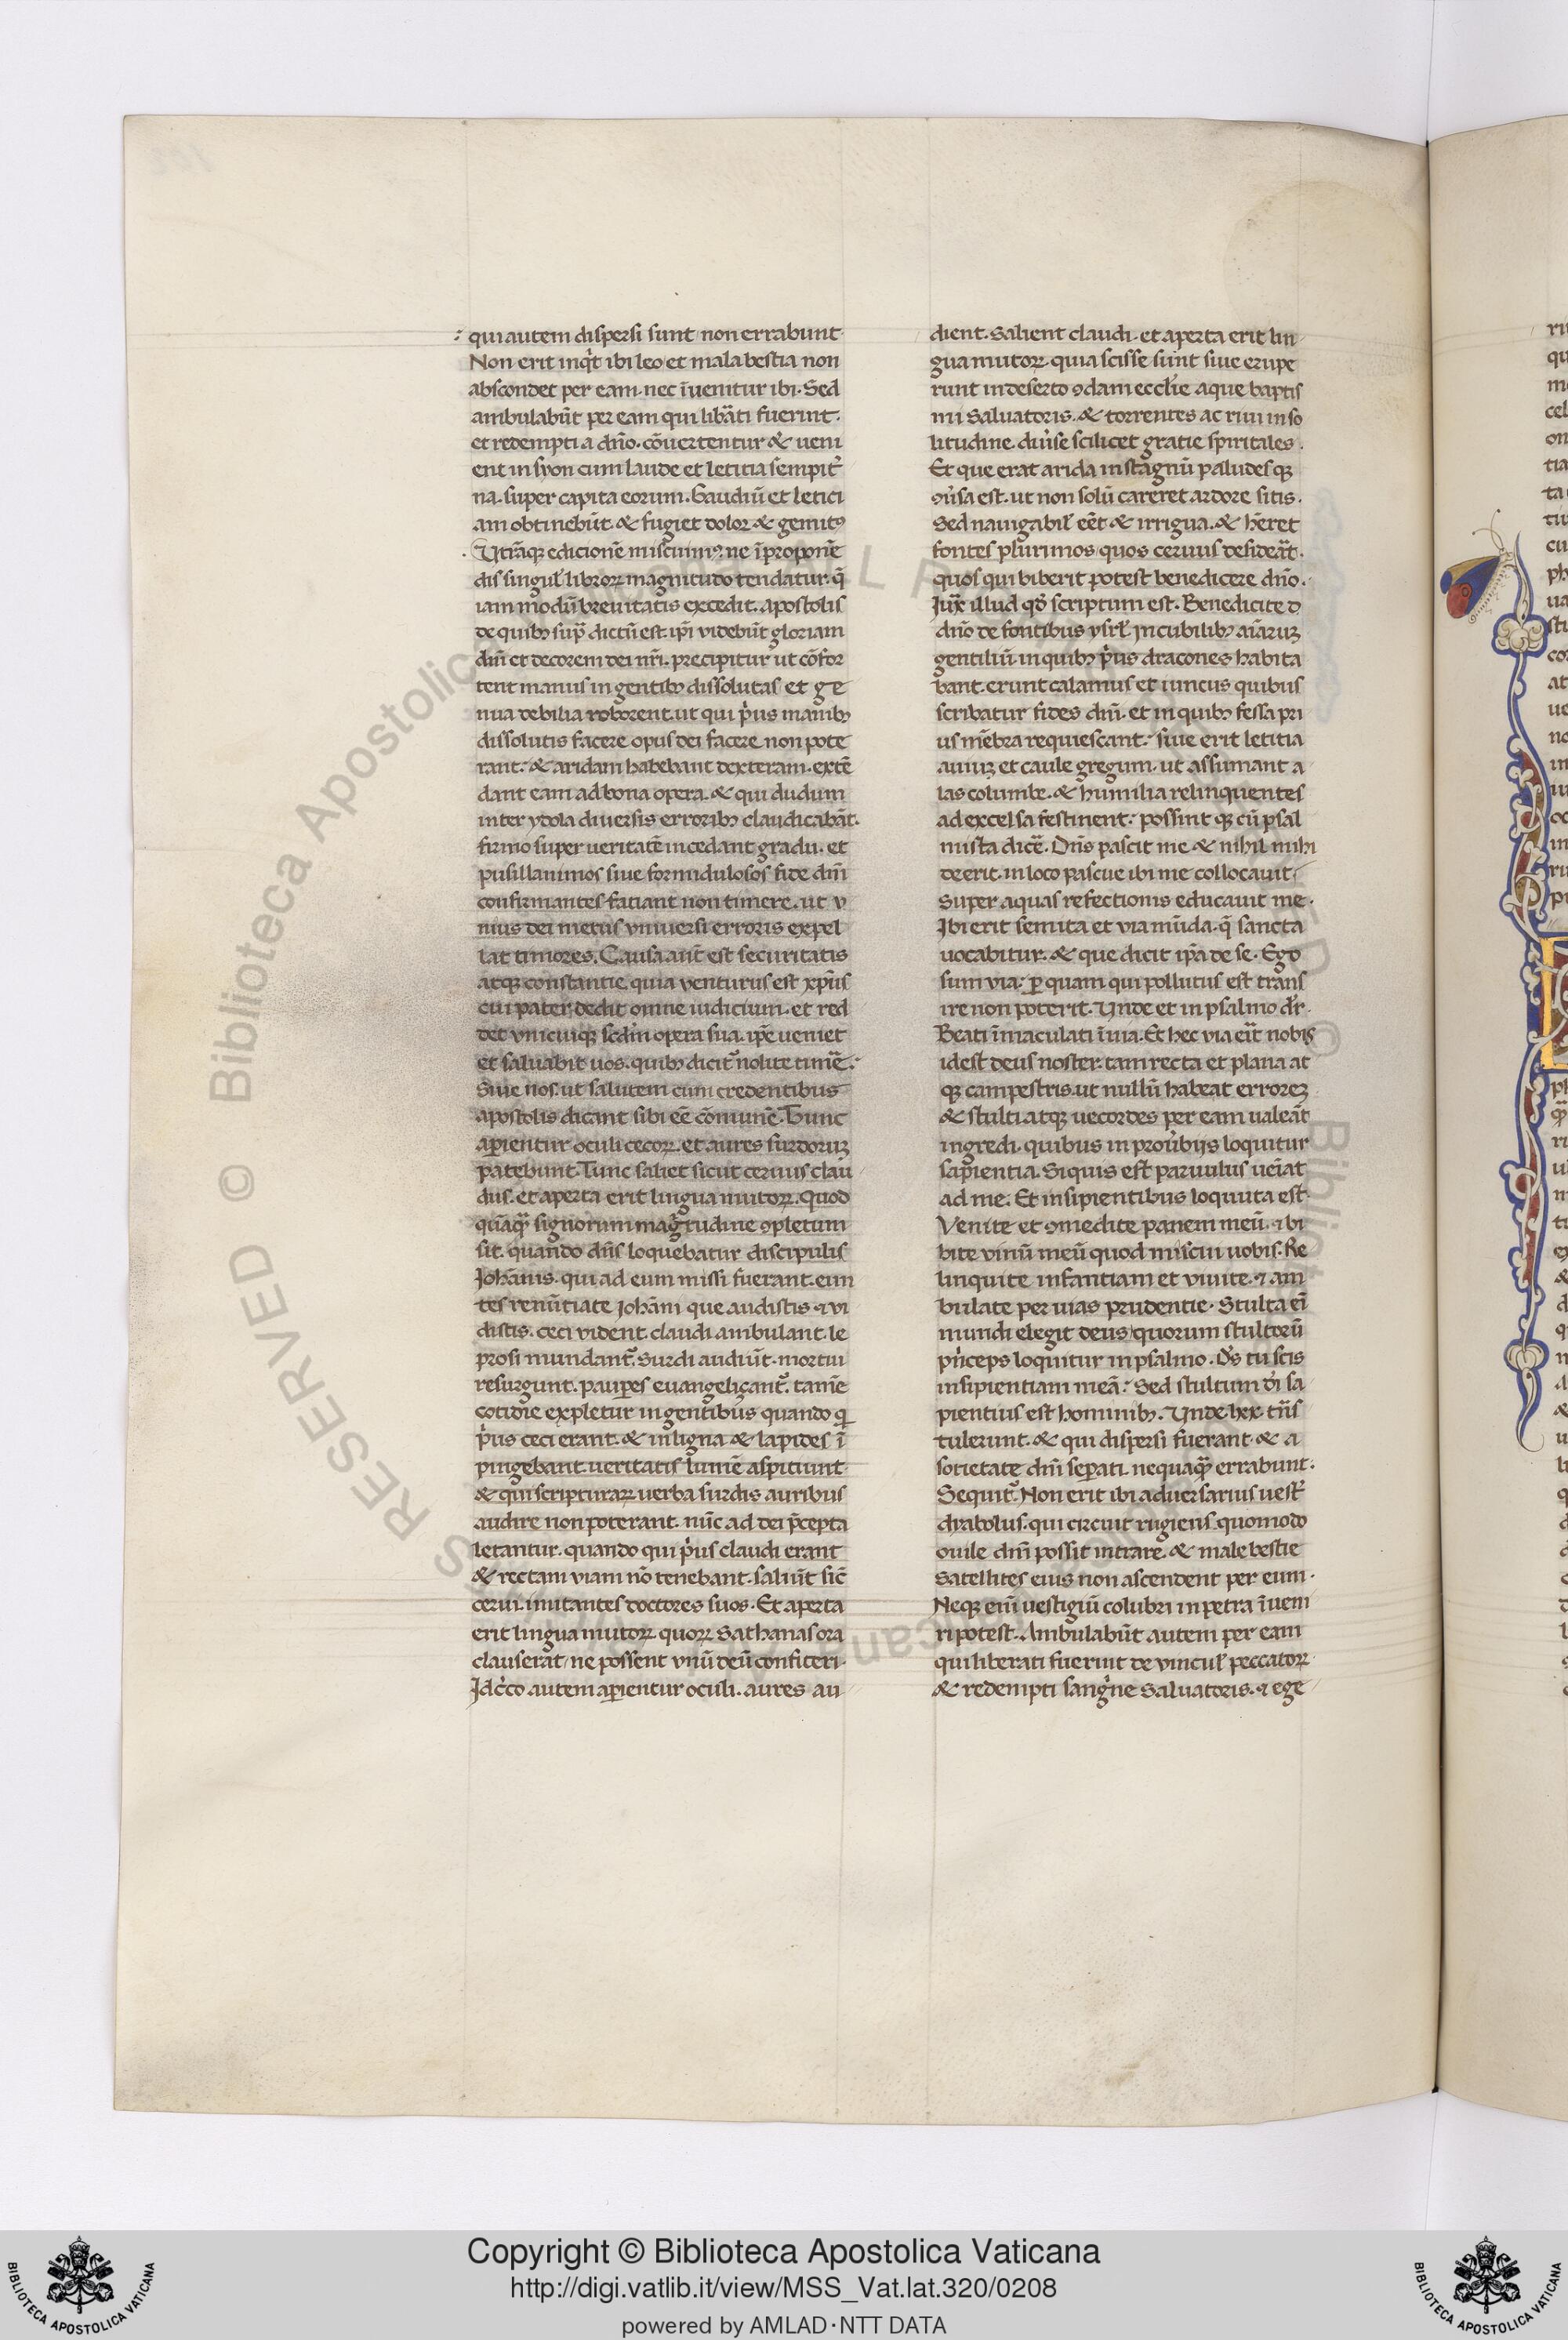 qui autem dispersi sunt non errabunt·
Non erit inq̇t ibi leo et mala bestia non
abscondet per eam· nec īuenitur ibi· Sed
ambulabūt per eam qui libāti fuerint·
et redempti a dño· cōuertentur & ueni
ent in syon cum laude et letitia sempit̉
na· super capita eorum· Gaudiū et letici
am obtinebūt· & fugiet dolor & gemitꝰ
Utrāqꝫ edicionē miscuimꝰ· ne ī proponē
dis singul̉ librorꝝ magnitudo tendatur· q̄
iam modū breuitatis excedit· apostolis
de quibꝫ sup̄ dictū est· ip̄i videbūt gloriam
dñi et decorem dei nr̄i· precipitur ut cōfor
tent manus in gentibꝫ dissolutas et ge
nua debilia roborent· ut qui p̉us manibꝫ
dissolutis facere opus dei facere non pote
rant· & aridam habebant dexteram· extē
dant eam ad bona opera· & qui dudum
inter ydola diuersis erroribꝫ claudicabāt·
firmo super ueritatē incedant gradu· et
pusillanimos siue formidulosos fide dñi
confirmantes fatiant non timere· ut v
nius dei metus vniuersi erroris expel
lat timores· Causa aūt est securitatis
atqꝫ constantie quia venturus est xp̄us
cui pater dedit omne iudicium· et red
det vnicuiqꝫ scdm̄ opera sua· ip̄e ueniet
et saluabit uos· quibꝫ dicit᷑ nolite timē·
Siue nos· ut salutem cum credentibus
apostolis dicant sibi eē cōmunē· Tunc
aꝑientur oculi cecorꝝ et aures surdoruꝫ
patebunt· Tunc saliet sicut ceruus clau
dus· et aperta erit lingua mutorꝝ· Quod
quāqꝫ̄ signorum mag̉tudine ꝯpletum
sit· quando dñs loquebatur discipulis
Johānis· qui ad eum missi fuerant· eun
tes renūtiate Johāni que audistis ⁊ vi
distis· ceci vident· claudi ambulant· le
prosi mundant᷑· Surdi audiūt· mortui
resurgunt· pauꝑes euangeliçant᷑· tamē
cotidie expletur in gentibus quando q̇
p̉us ceci erant· & in ligna & lapides ī
pingebant· ueritatis lumē aspitiunt·
& qui scripturarꝝ uerba surdis auribus
audire non poterant· nūc ad dei p̄cepta
letantur· quando qui p̉us claudi erant
& rectam viam nō tenebant· saliūt sic̄
cerui· imitantes doctores suos· Et aperta
erit lingua mutorꝝ quorꝝ Sathanas ora
clauserat ne possent vnū deū confiteri·
Jdc̉co autem aꝑientur oculi· aures au
dient· Salient claudi· et aperta erit lin
gua mutorꝝ· quia scisse sunt siue erupe
runt in deserto ꝯdam eccl̄ie aque baptis
mi Saluatoris· & torrentes ac riui in so
litudine· diu̓se scilicet gratie sp̄iritales·
Et que erat arida in stagnū paludesqꝫ
ꝯu̓sa est· ut non solū careret ardore sitis·
Sed nauigabil̉ eēt & irrigua· & hēret
fontes plurimos quos ceruus desideāt·
quos qui biberit potest benedicere dño·
Jux̄ illud qd̉ scriptum est· Benedicite d
dño de fontibus ysrl̄ Jn cubilibꝫ aīaruꝫ
gentiliū in quibꝫ p̉us dracones habita
bant· erunt calamus et iuncus quibus
scribatur fides dñi· et in quibꝫ fessa pri
us mēbra requiescant· siue erit letitia
auiuꝫ et caule gregum· ut assumant a
las columbe· & humilia relinquentes
ad excelsa festinent· possint qꝫ cū psal
mista dicē· Dñs pascit me & nihil mihi
deerit· in loco pascue ibi me collocauit·
Super aquas refectionis educauit me·
Jbi erit semita et via mūda· q̄ sancta
uocabitur· & que dicit ip̄a de se· Ego
sum via· ꝑ quam qui pollutus est trans
ire non poterit· Unde et in psalmo dr̄·
Beati īmaculati ī uia· Et hec via erit nobis
idest deus noster· tam recta et plana at
qꝫ campestris ut nullū habeat erroreꝫ
& stulti atqꝫ uecordes per eam ualeāt
ingredi· quibus in prou̓bijs loquitur
sapientia· Siquis est paruulus ueīat
ad me· Et insipientibus loquuta est·
Venite et ꝯmedite panem meū· ⁊ bi
bite vinū meū quod miscui uobis· Re
linquite infantiam et viuite· ⁊ am
bulate per uias prudentie· Stulta eī
mundi elegit deus quorum stultorū
p̉nceps loquitur in psalmo· Ds̄ tu scis
insipientiam meā· Sed stultum dī sa
pientius est hominibꝫ· Unde lxx· tn̄s
tulerunt· & qui dispersi fuerant & a
sotietate dñi seꝑati nequaqꝫ̄ errabunt·
Sequit᷑· Non erit ibi aduersarius uestr̄
dyabolus· qui circuit rugiens quomodo
ouile dñi possit intrare· & male bestie
Satellites eius non ascendent per eum·
Neqꝫ enī uestigiū colubri in petra īueni
ri potest· Ambulabūt autem per eam
qui liberati fuerint de vincul̉ peccatorꝝ
& redempti sang̉ne Saluatoris· ⁊ ege
Copyright © Biblioteca Apostolica Vaticana
http://digi.vatlib.it/view/MSS_Vat.lat.320/0208
powered by AMLAD·NTT DATA
BIBLIOTECA APOSTOLICA VATICANA
BIBLIOTECA APOSTOLICA VATICANA